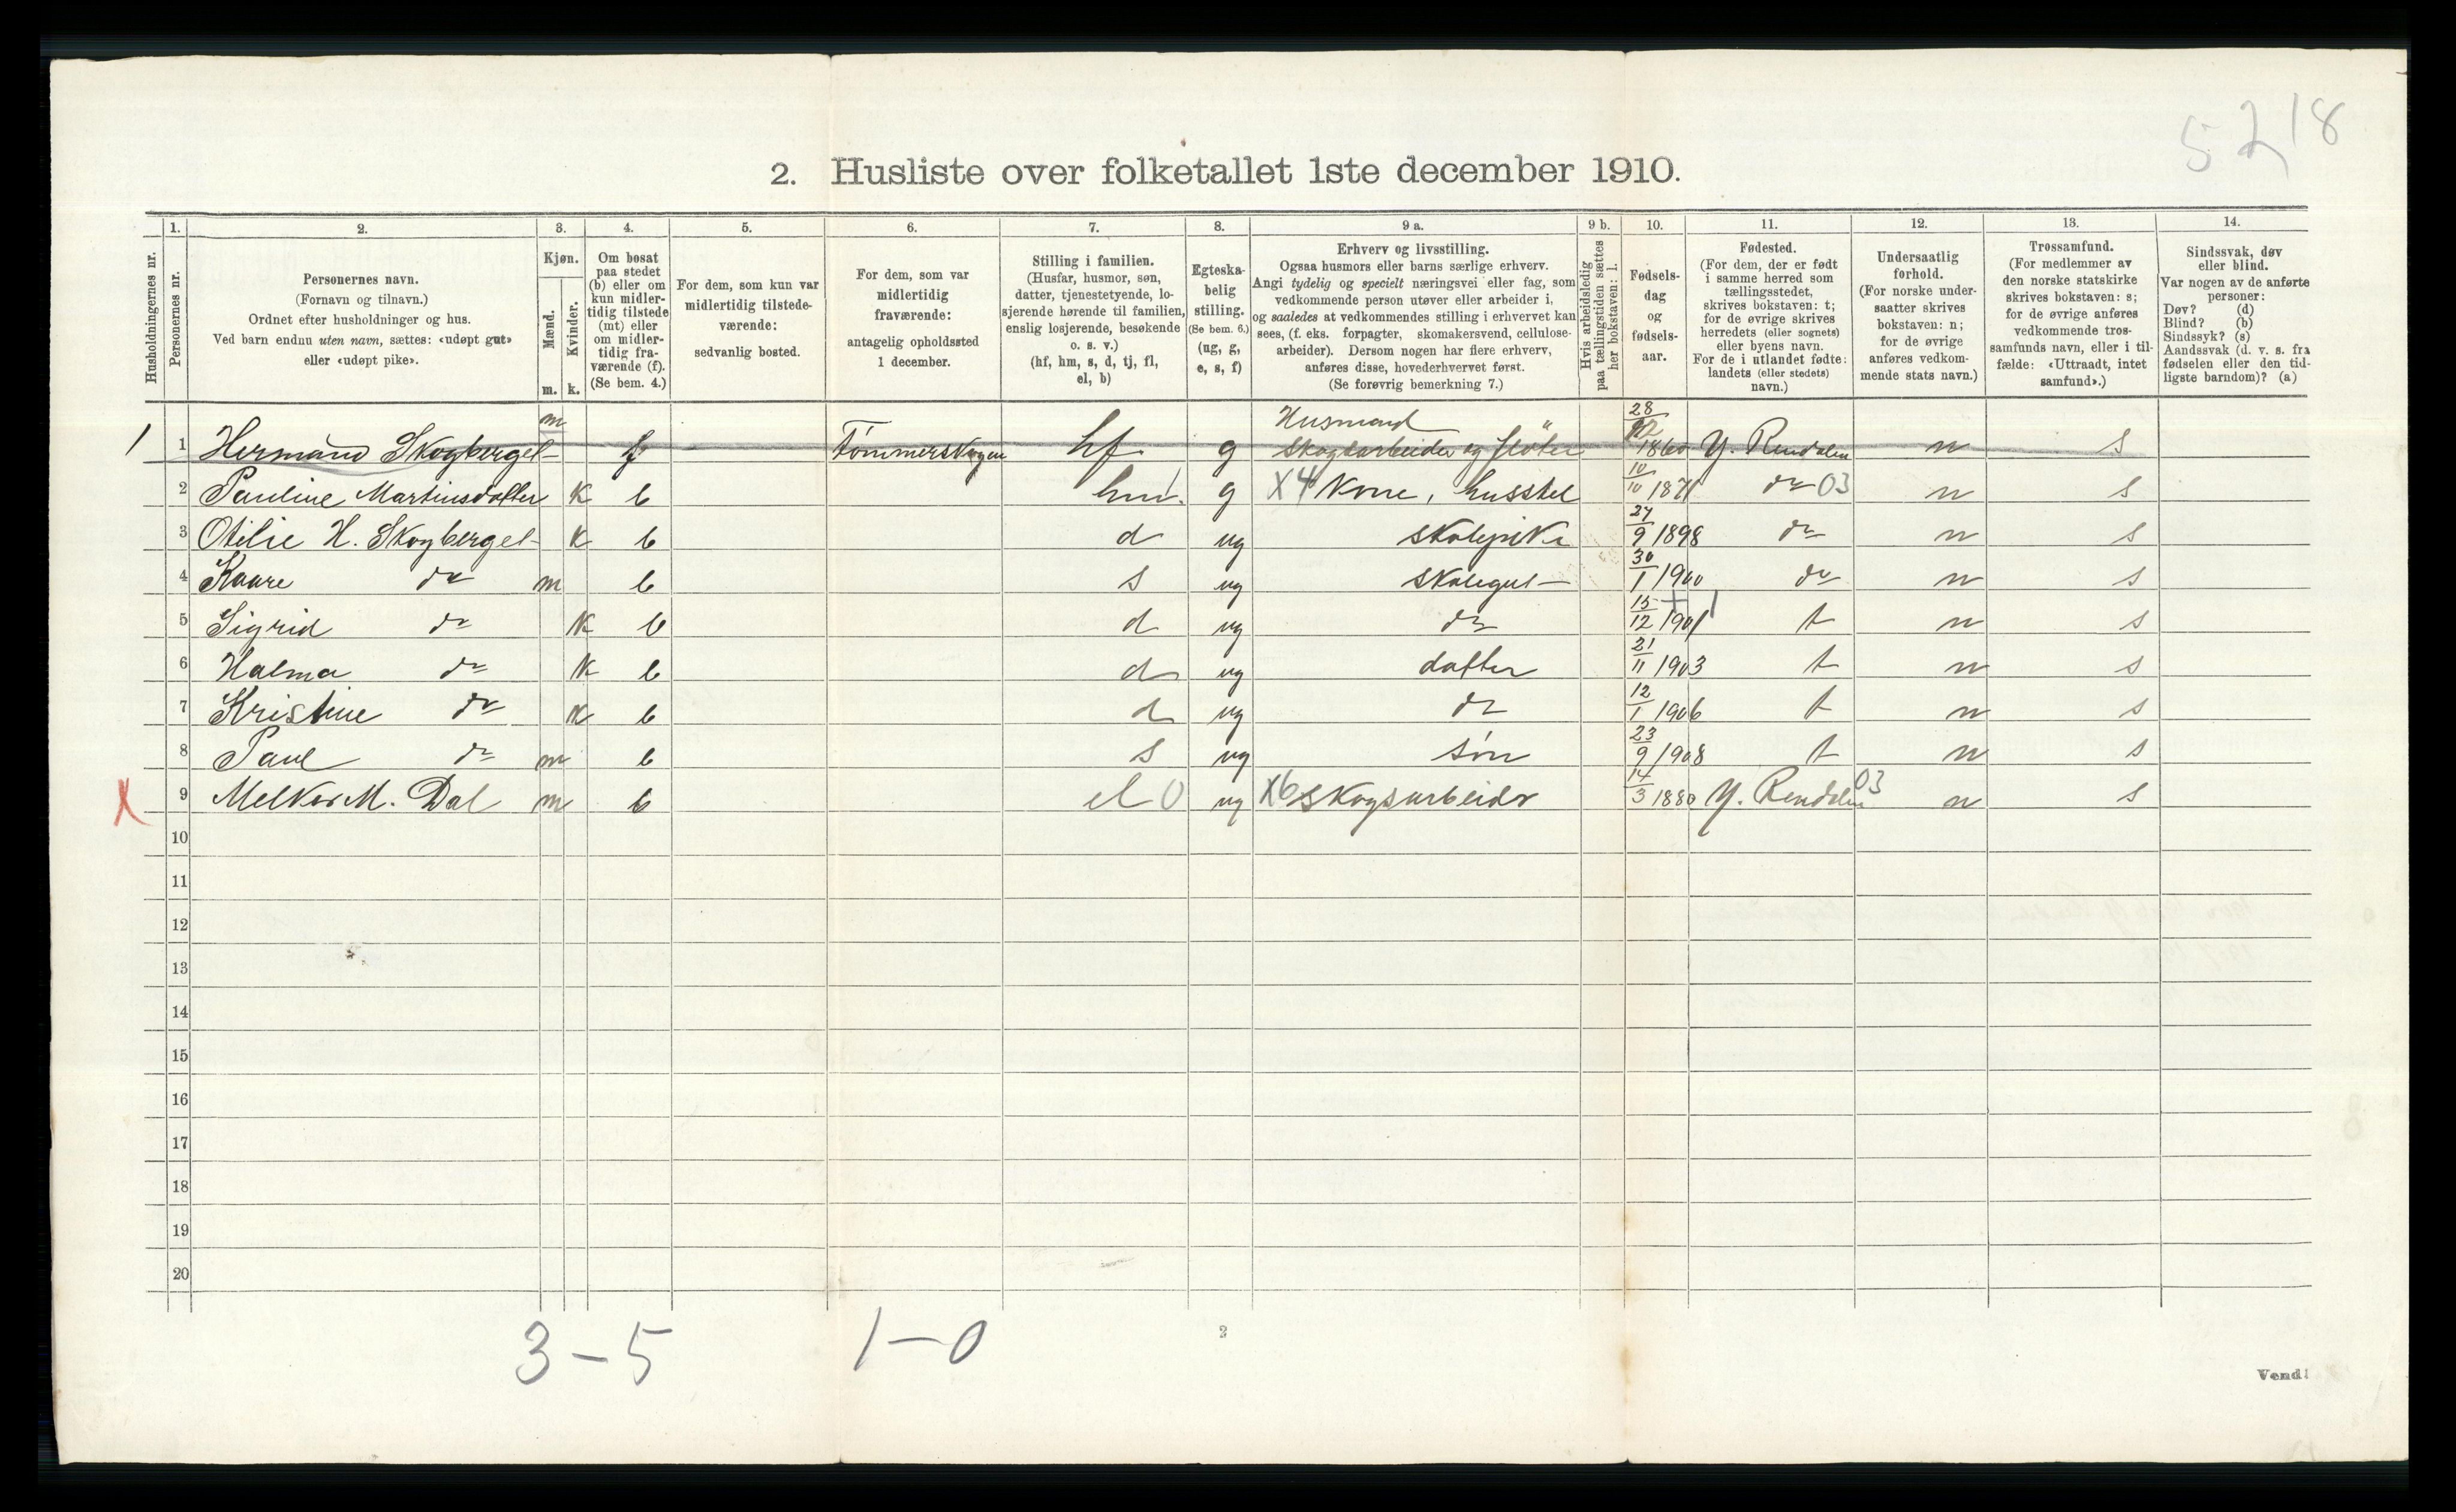 5218
2. Husliste over folketallet 1ste december 1910.
Husholdningernes nr.
1.
Personernes nr.
2.
Personernes navn.
(Fornavn og tilnavn.)
Ordnet efter husholdninger og hus.
Ved barn endnu uten navn, sættes: «udøpt gut»
eller «udøpt pike».
3.
Kjøn.
Mænd.
m.
Kvinder.
k.
4.
Om bosat
paa stedet
(b) eller om
kun midler-
tidig tilstede
(mt) eller
om midler-
tidig fra-
værende (f).
(Se bem. 4.)
5.
For dem, som kun var
midlertidig tilstede-
værende:
sedvanlig bosted.
6.
For dem, som var
midlertidig
fraværende:
antagelig opholdssted
1 december.
7.
Stilling i familien.
(Husfar, husmor, søn,
datter, tjenestetyende, lo-
sjerende hørende til familien,
enslig losjerende, besøkende
o. s. v.)
(hf, hm, s, d, tj, fl,
el, b)
8.
Egteska-
belig
stilling.
(Se bem. 6.)
(ug, g,
e, s, f)
9 a.
Erhverv og livsstilling.
Ogsaa husmors eller barns særlige erhverv.
Angi tydelig og specielt næringsvei eller fag, som
vedkommende person utøver eller arbeider i,
og saaledes at vedkommendes stilling i erhvervet kan
sees, (f. eks. forpagter, skomakersvend, cellulose-
arbeider). Dersom nogen har flere erhverv,
anføres disse, hovederhvervet først.
(Se forøvrig bemerkning 7.)
9 b.
Hvis arbeidsledig
paa tællingstiden sættes
her bokstaven: l.
10.
Fødsels-
dag
og
fødsels-
aar.
11.
Fødested.
(For dem, der er født
i samme herred som
tællingsstedet,
skrives bokstaven: t;
for de øvrige skrives
herredets (eller sognets)
eller byens navn.
For de i utlandet fødte:
landets (eller stedets)
navn.)
12.
Undersaatlig
forhold.
(For norske under-
saatter skrives
bokstaven: n;
for de øvrige
anføres vedkom-
mende stats navn.)
13.
Trossamfund.
(For medlemmer av
den norske statskirke
skrives bokstaven: s;
for de øvrige anføres
vedkommende tros-
samfunds navn, eller i til-
fælde: «Uttraadt, intet
samfund».)
14.
Sindssvak, døv
eller blind.
Var nogen av de anførte
personer:
Døv? (d)
Blind? (b)
Sindssyk? (s)
Aandssvak (d. v. s. fra
fødselen eller den tid-
ligste barndom)? (a)
1 1 Hermand Skogberget m f Tømmerskogen hf g Husmand Skogsarbeider og fløter 28 1860 Y. Rendalen n s
2 Pauline Martinsdatter k b hm. g X4 Kone, husstel 10/10 1871 do 03 n s
3 Otilie H. Skogberget k b d ug skolepike 27/9 1898 do n s
4 Kaare do m b s ug skolegut 30/1 1900 do n s
5 Sigrid do k b d ug do 15/12 1901 t n s
6 Halma do k b d ug datter 21/11 1903 t n s
7 Kristine do k b d ug do 12/1 1906 t n s
8 Paul do m b s ug søn 23/9 1908 t n s
X 9 Melker M. Dal m b el 0 ug X6 skogsarbeider 14/3 1880 Y. Rendalen 03 n s
10
11
12
13
14
15
16
17
18
19
20
3-5 1-0
2
Vend!